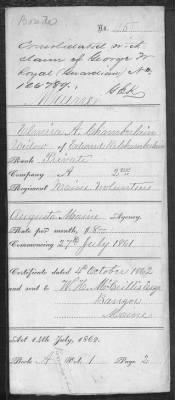 No. 45
Consolidated with
claim of George W
Royal Guardian No.
126789.
Maine
Almira A. Chamberlain
Widow of Edward K. Chamberlain
Rank Private
Company A 2nd
Regiment Maine Volunteers
Augusta Maine Agency.
Rate per month, $8.00
Commencing 27th July 1861
Certificate dated 4th October 1862
and sent to W. H. McCrillis Esq
Bangor
Maine
Act 14th July, 1862.
Book A Vol. 1 Page 2